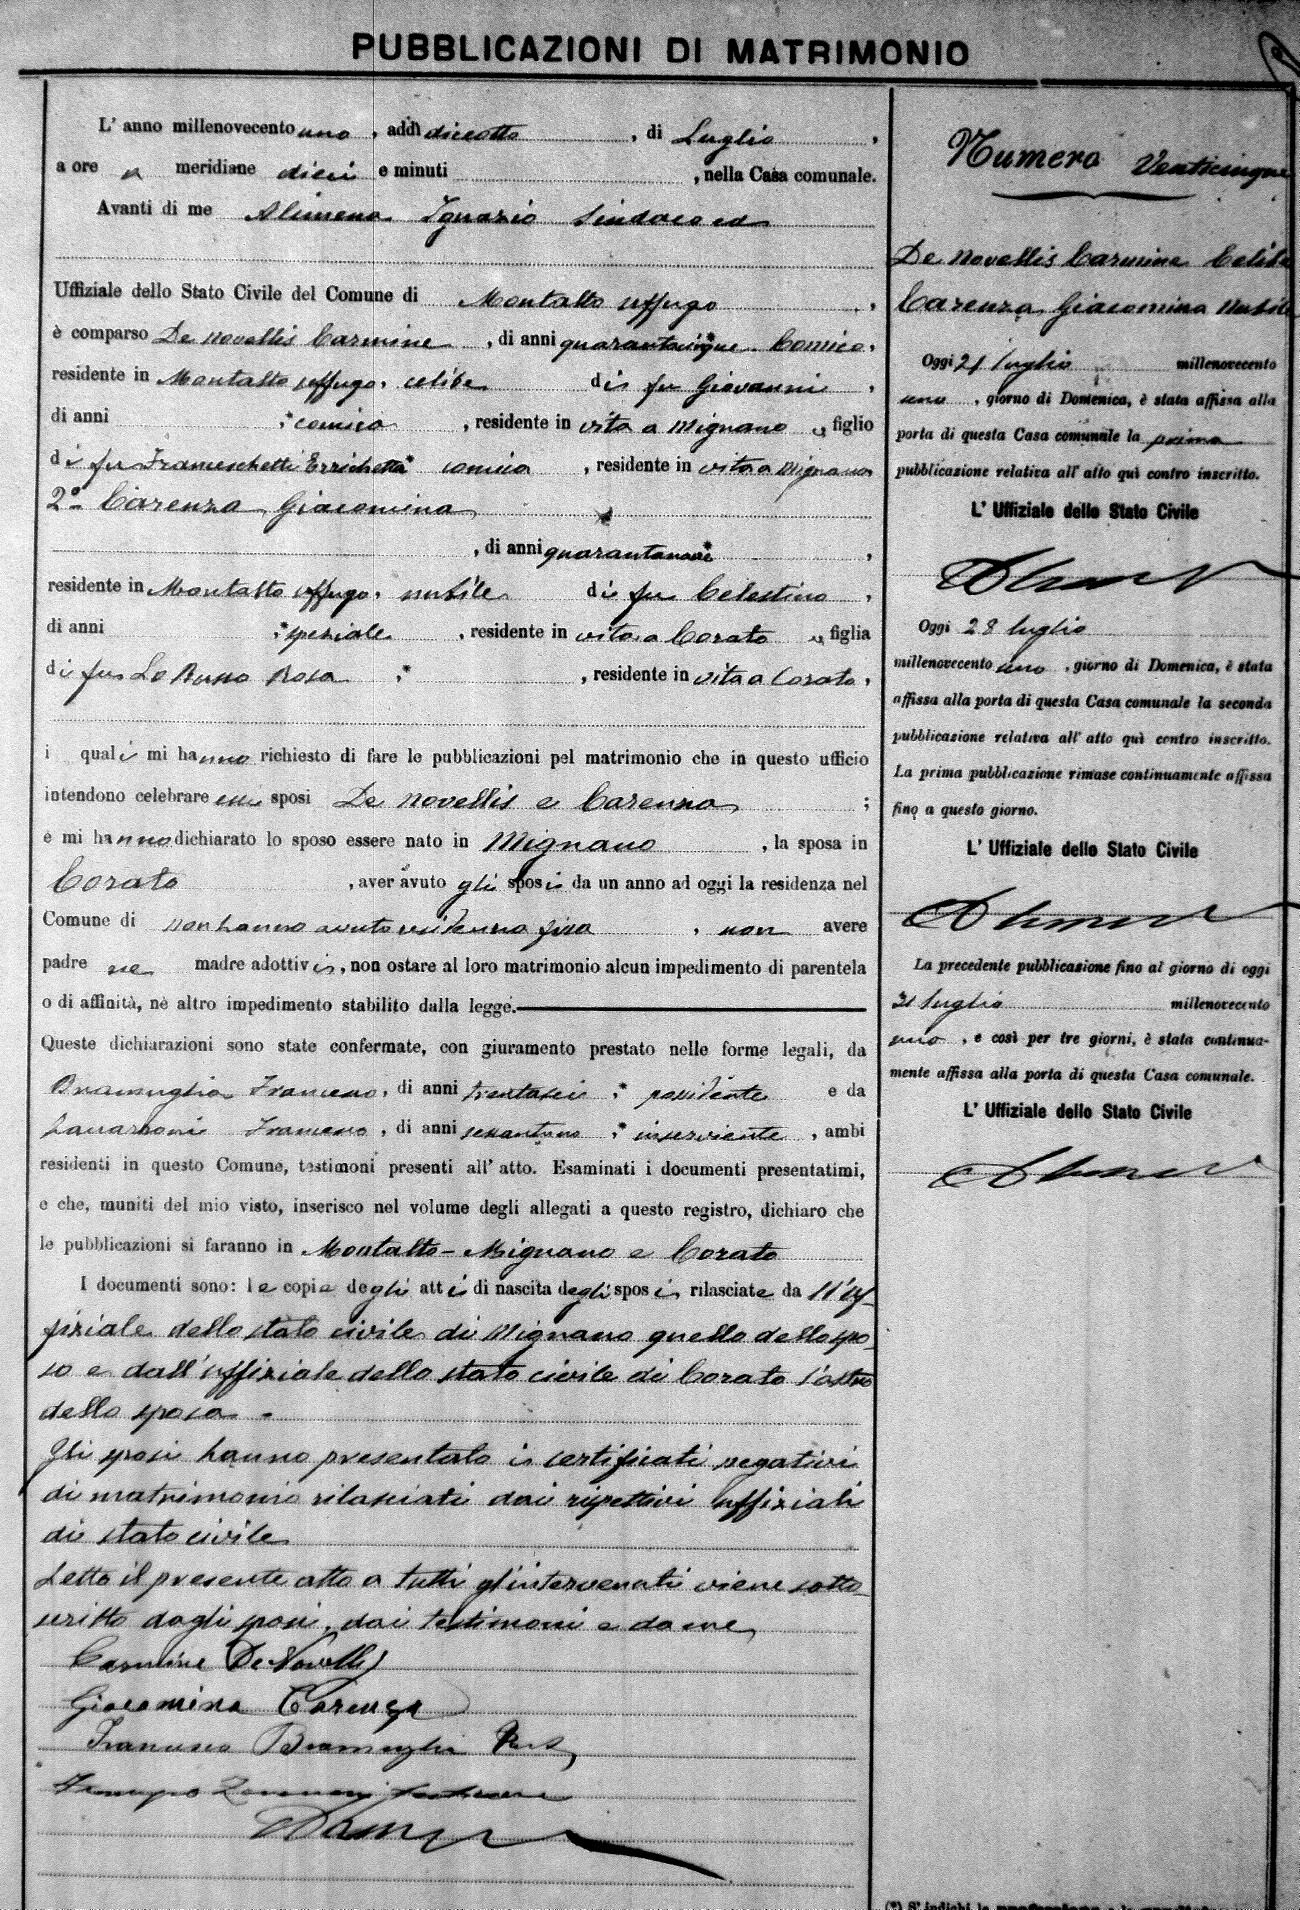 PUBBLICAZIONI DI MATRIMONIO
L' anno millenovecento uno, addì diciotto, di Luglio,
a ore a meridiane dieci e minuti , nella Casa comunale.
Avanti di me Alimena Ignazio Sindaco ed
Uffiziale dello Stato Civile del Comune di Montalto Uffugo,
è comparso De Novellis Carmine, di anni quarantacinque Comico,
residente in Montalto Uffugo, celibe di fu Giovanni,
di anni ,* comico, residente in vita a Mignano, figlio
di fu Franceschetti Errichetta* comica, residente in vita a Mignano
2° Carenza Giacomina
, di anni quarantanove*,
residente in Montalto Uffugo, nubile di fu Celestino,
di anni ,* speziale, residente in vita a Corato, figlia
di fu Lo Russo Rosa ,* , residente in vita a Corato,
i quali mi hanno richiesto di fare le pubblicazioni pel matrimonio che in questo ufficio
intendono celebrare essi sposi De Novellis e Carenza;
e mi hanno dichiarato lo sposo essere nato in Mignano, la sposa in
Corato, aver avuto gli sposi da un anno ad oggi la residenza nel
Comune di non hanno avuto residenza fissa, non avere
padre ne madre adottivi, non ostare al loro matrimonio alcun impedimento di parentela
o di affinità, nè altro impedimento stabilito dalla legge.
Queste dichiarazioni sono state confermate, con giuramento prestato nelle forme legali, da
Bramuglia Francesco, di anni trentasei,* possidente e da
Francesco, di anni sessantuno,* inserviente, ambi
residenti in questo Comune, testimoni presenti all' atto. Esaminati i documenti presentatimi,
e che, muniti del mio visto, inserisco nel volume degli allegati a questo registro, dichiaro che
le pubblicazioni si faranno in Montalto - Mignano e Corato
I documenti sono: le copie degli atti di nascita degli sposi, rilasciate da ll'uf-
fiziale dello stato civile di Mignano quello dello spo-
so e dall'uffiziale dello stato civile di Corato l'altro
della sposa.
Gli sposi hanno presentato i certificati negativi
di matrimonio rilasciati dai rispettivi uffiziali
di stato civile
Letto il presente atto a tutti gl'intervenuti viene sotto-
scritto dagli sposi, dai testimoni e da me
Carmine De Novellis
Giacomina Carenza
Francesco Bramuglia
Numero Venticinque
De Novellis Carmine Celibe
Carenza Giacomina Nubile
Oggi 21 luglio millenovecento
uno, giorno di Domenica, è stata affissa alla
porta di questa Casa comunale la prima
pubblicazione relativa all' atto quì contro inscritto.
L' Uffiziale dello Stato Civile
Oggi 28 luglio
millenovecento uno, giorno di Domenica, è stata
affissa alla porta di questa Casa comunale la seconda
pubblicazione relativa all' atto quì contro inscritto.
La prima pubblicazione rimase continuamente affissa
fino a questo giorno.
L' Uffiziale dello Stato Civile
La precedente pubblicazione fino al giorno di oggi
31 luglio millenovecento
uno, e così per tre giorni, è stata continua-
mente affissa alla porta di questa Casa comunale.
L' Uffiziale dello Stato Civile
(*) S' indichi la professione